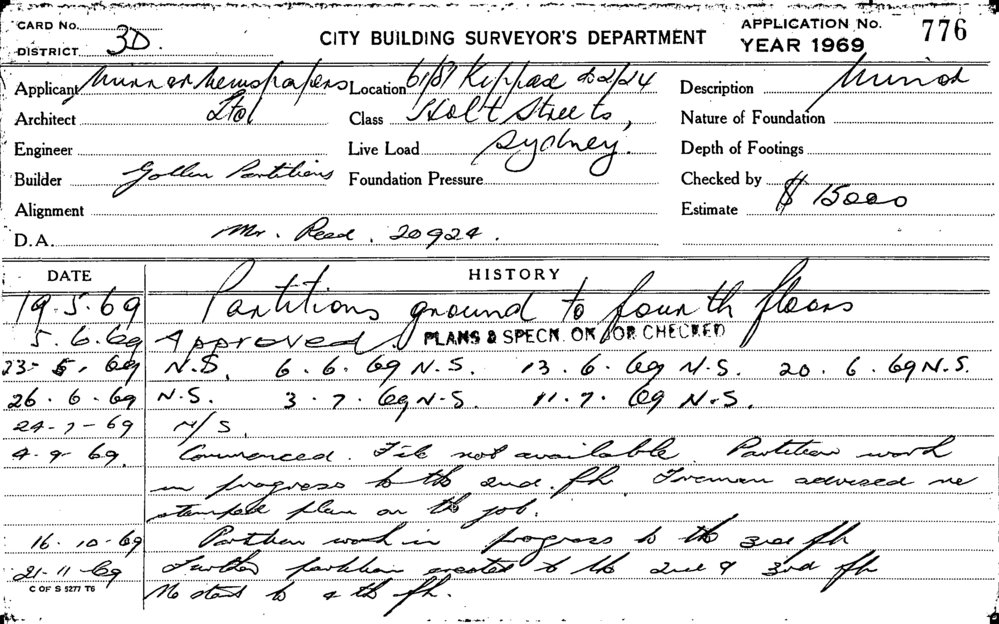 CARD No.
DISTRICT 3D.
CITY BUILDING SURVEYOR'S DEPARTMENT
APPLICATION No. 776
YEAR 1969
Applicant Mirror Newspapers Location 61/81 Kippax & 2/24 Description Minor
Architect Ltd Class Holt Streets, Nature of Foundation
Engineer Live Load Sydney. Depth of Footings
Builder Gollin Partitions Foundation Pressure Checked by
Alignment Estimate $ 15000
D.A. Mr. Reed. 20924.
DATE HISTORY
19.5.69 Partitions ground to fourth floors
5.6.69 Approved PLANS & SPECN. ON JOB CHECKED
23-5-69 N.S. 6.6.69 N.S. 13.6.69 N.S. 20.6.69 N.S.
26.6.69 N.S. 3.7.69 N.S. 11.7.69 N.S.
24-7-69 N/S.
4.9.69. Commenced. File not available. Partition work
in progress to the 2nd. flr. Foreman advised me
stamped plan on the job.
16.10.69 Partition work in progress to the 3rd flr
21-11-69 Further partition erected to the 2nd & 3rd flr
No start to 4th flr.
C OF S 5277 T6